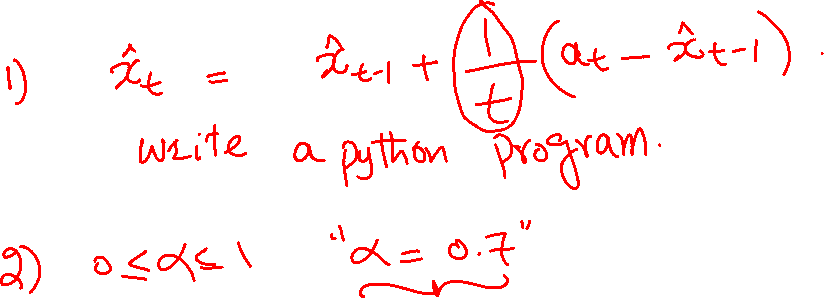 1) x̂t = x̂t-1 + (1/t) (at - x̂t-1).
write a python program.
2) 0 ≤ α ≤ 1 "α = 0.7"